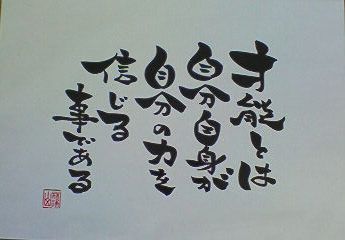 才能とは
自分自身が
自分の力を
信じる
事である